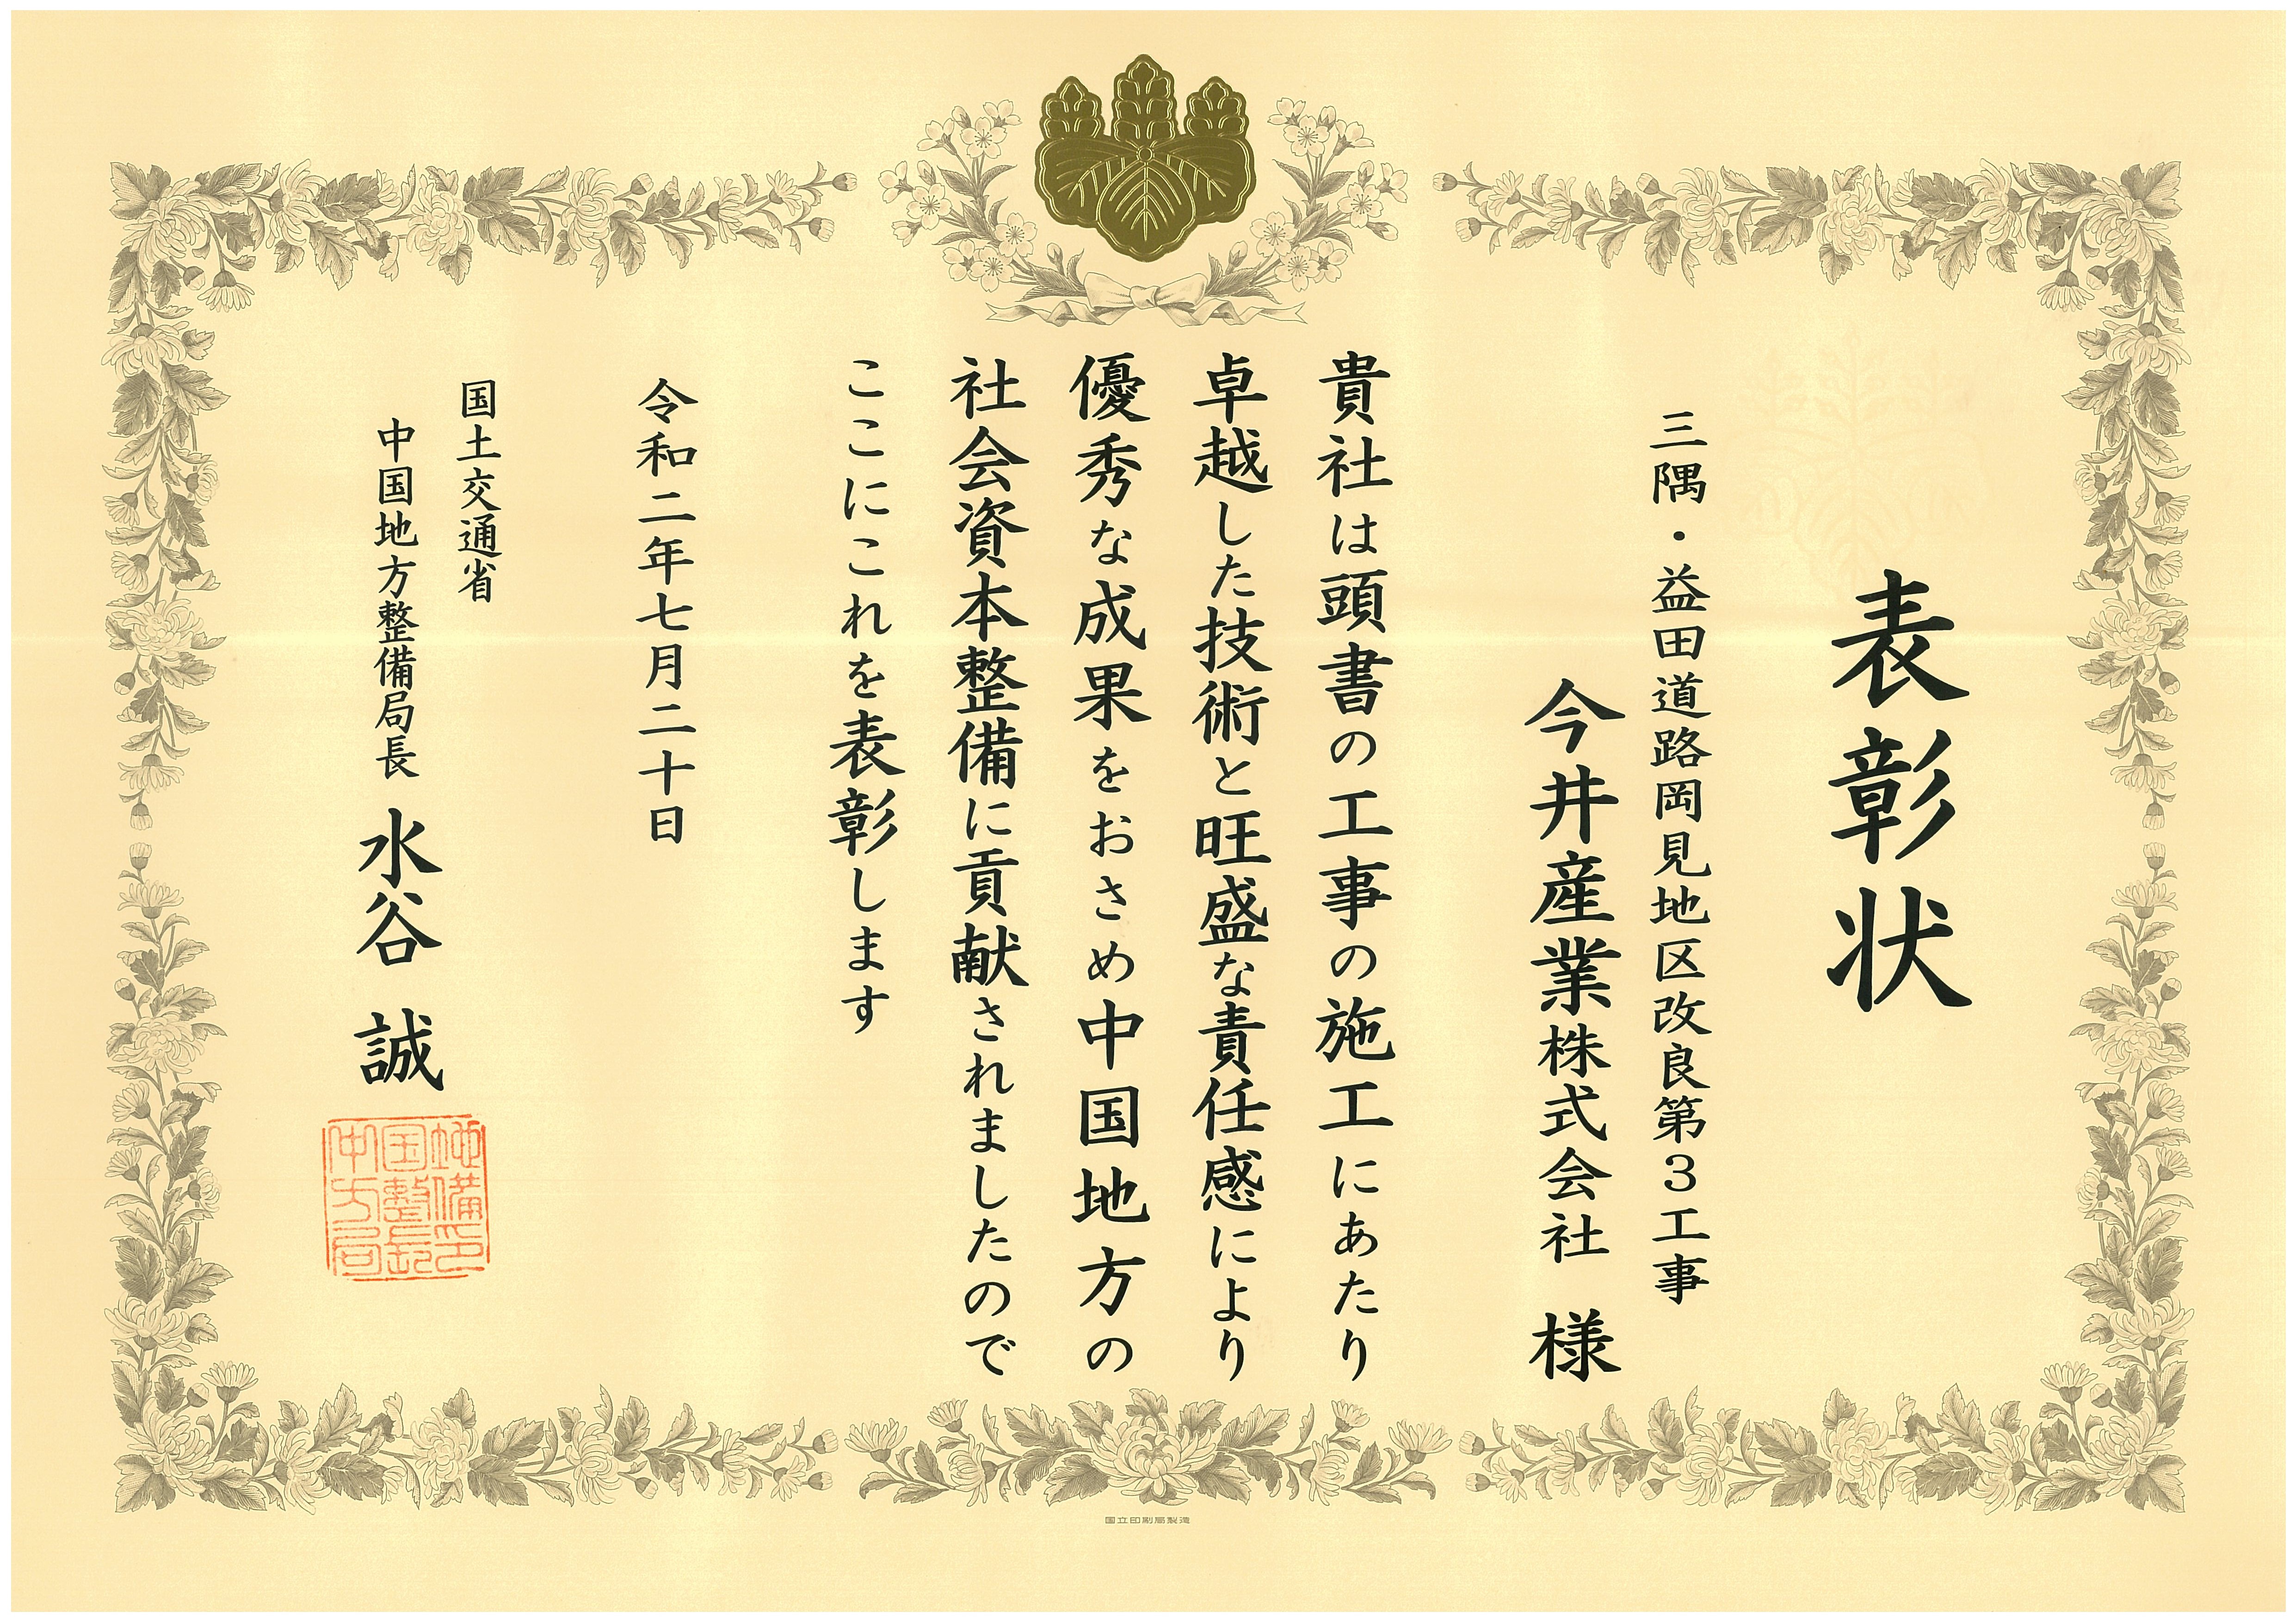 表彰状
三隅・益田道路岡見地区改良第3工事
今井産業株式会社 様
貴社は頭書の工事の施工にあたり
卓越した技術と旺盛な責任感により
優秀な成果をおさめ中国地方の
社会資本整備に貢献されましたので
ここにこれを表彰します
令和二年七月二十日
国土交通省
中国地方整備局長 水谷 誠
中国地
方整備
局長印
国立印刷局製造